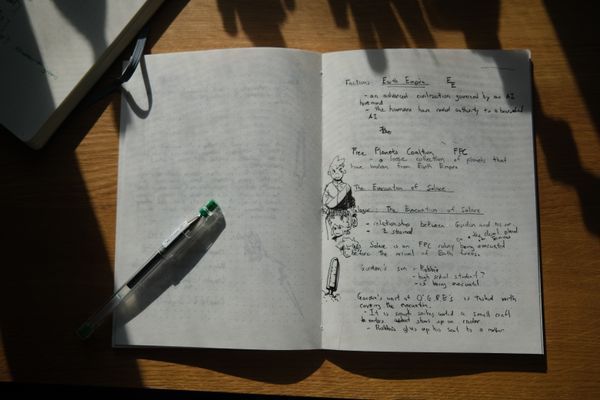 Factions: Earth Empire EE
- an advanced civilization governed by an AI
- the humans have ceded authority to a
AI
Free Planets Coalition FPC
- a loose collection of planets that
have broken from Earth Empire
The Evacuation of Solace
: The Evacuation of Solace
- relationship between Gordon and his
- is strained
Solace is an FPC colony being evacuated
before the arrival of Earth forces
Gordon's son - Robbie
- high school student?
- is being evacuated
Gordon's unit of O.G.R.E's is tasked with
covering the evacuation.
- It is smooth sailing until a small craft
up on radar
- Robbie gives up his seat to a mother